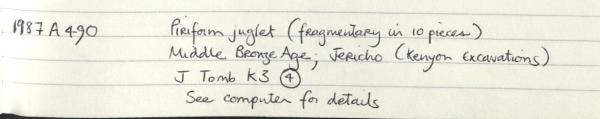 1987 A 490 Piriform juglet (fragmentary in 10 pieces)
Middle Bronze Age; Jericho (Kenyon Excavations)
J Tomb K3 ④
See computer for details